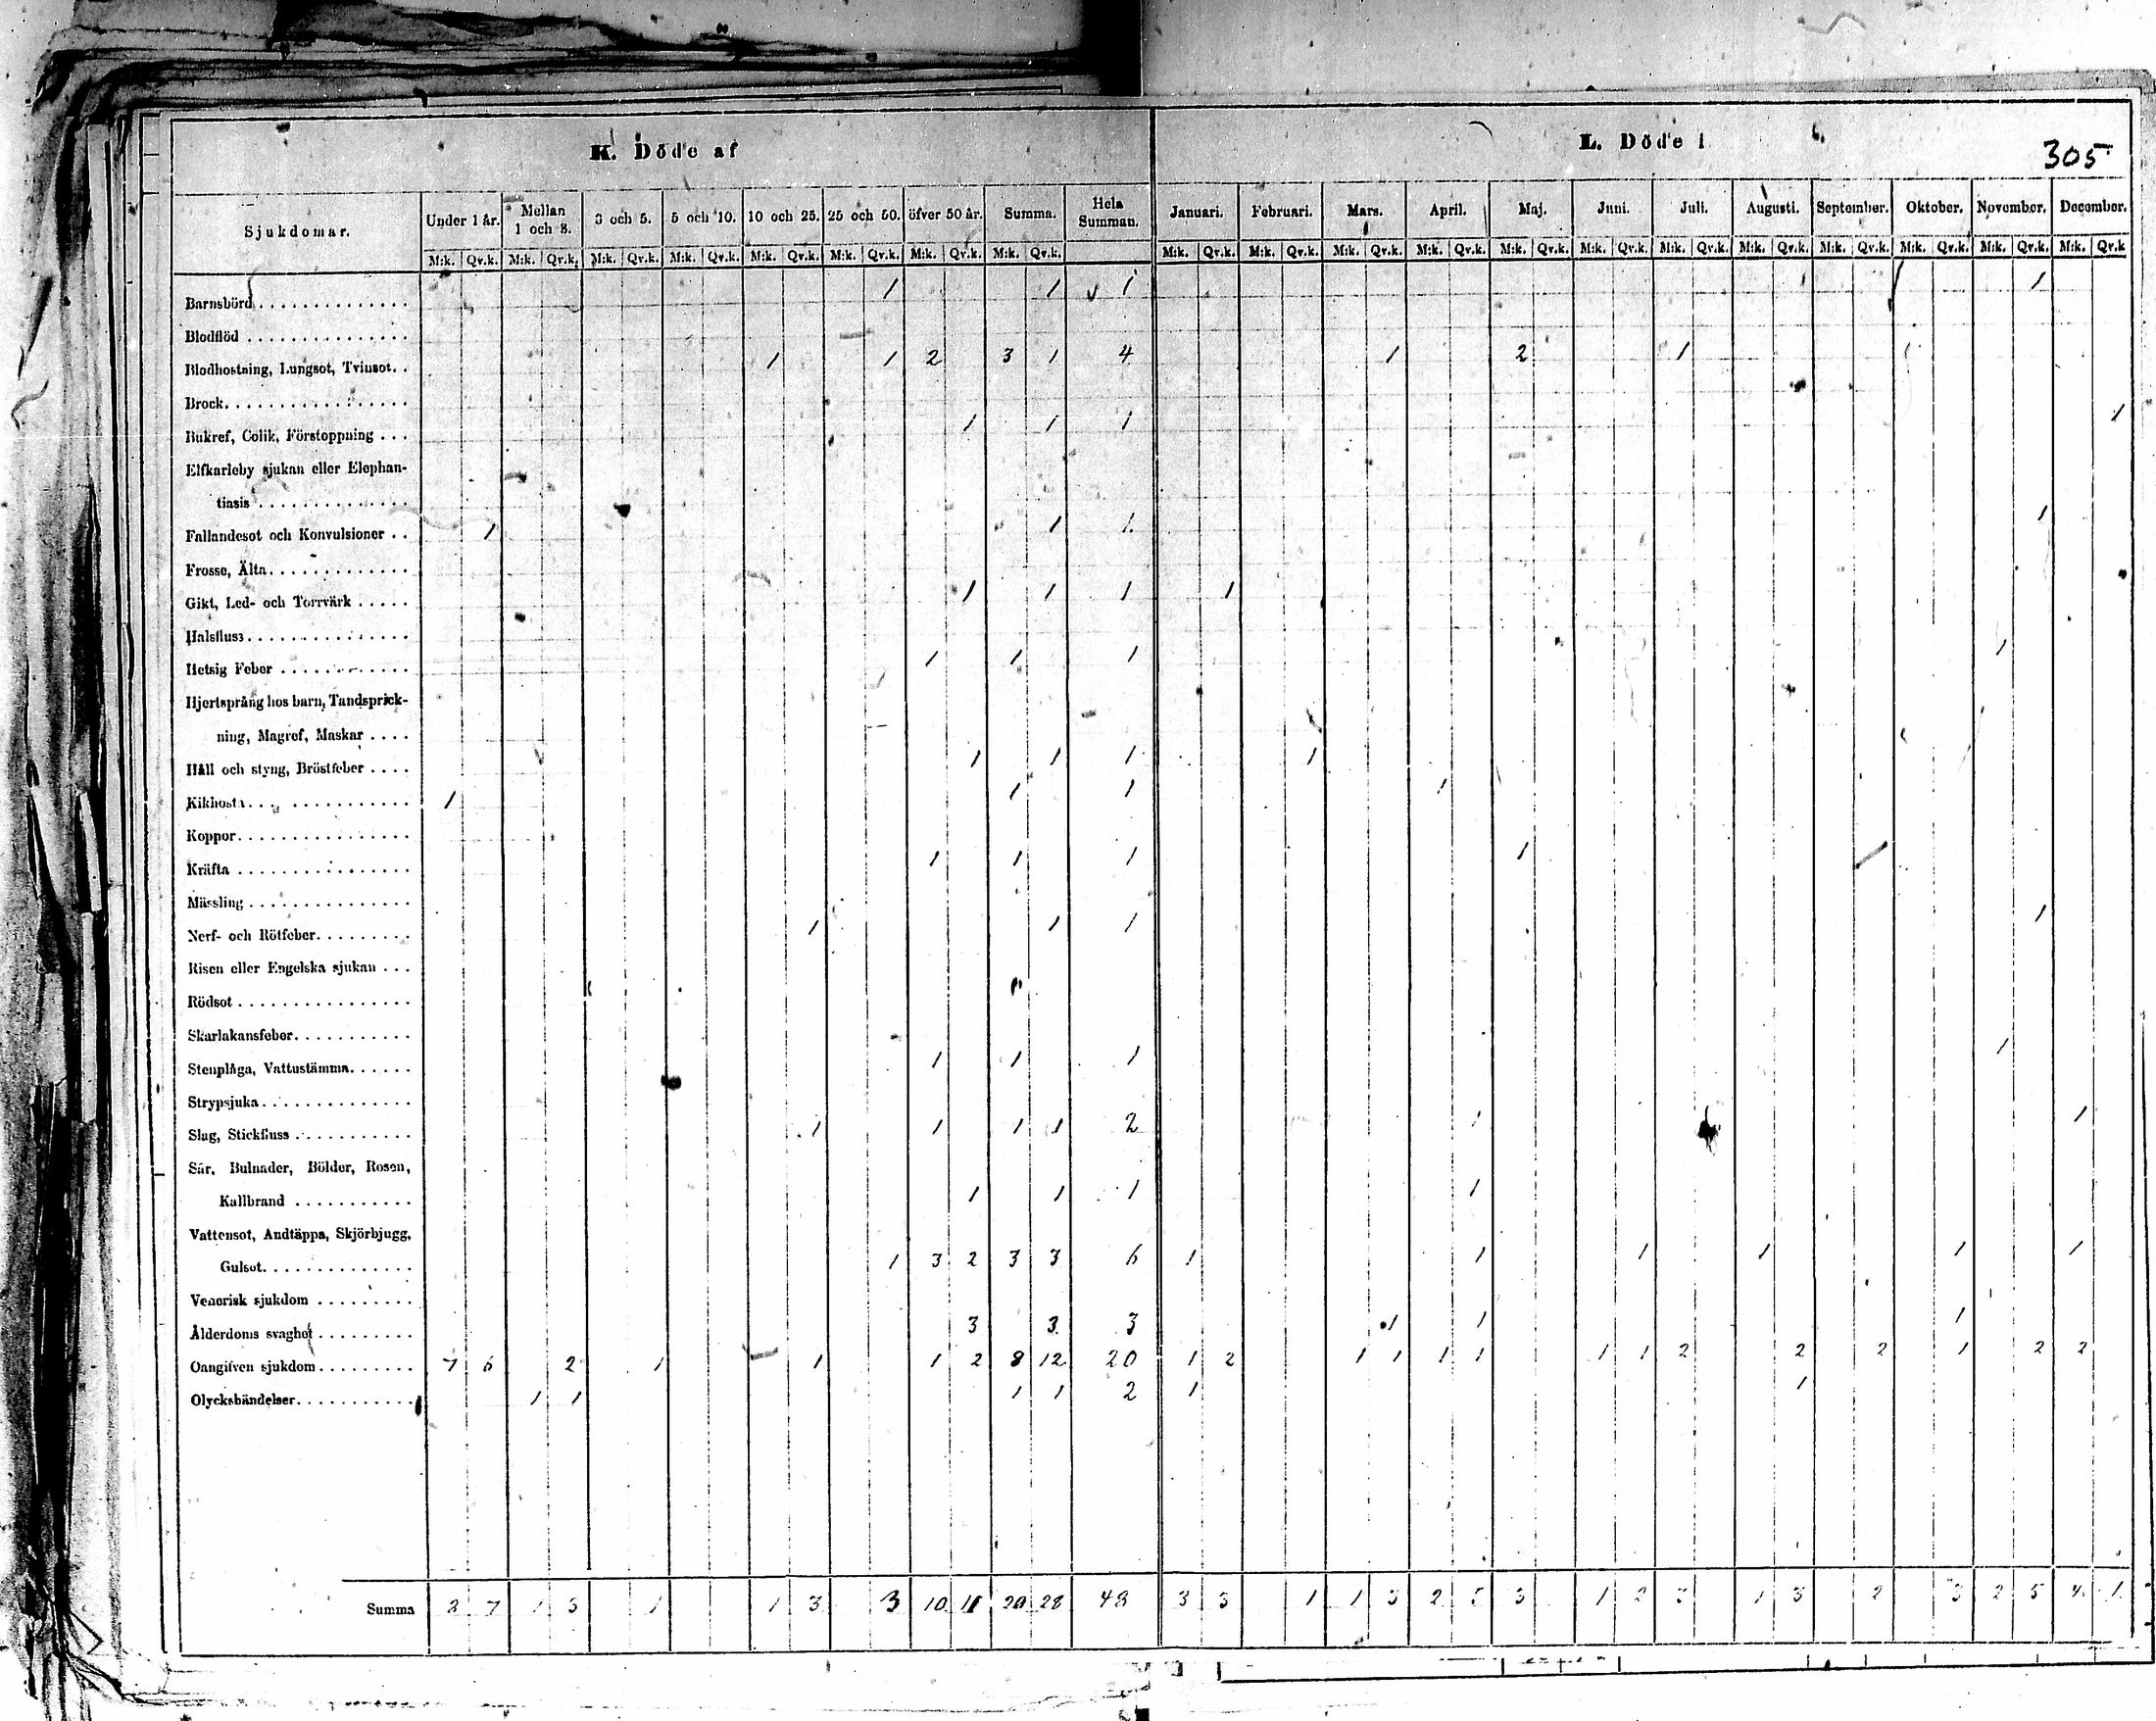 K. Döde af
L. Döde i
305
Sjukdomar. Under 1 år. Mellan 1 och 3. 3 och 5. 5 och 10. 10 och 25. 25 och 50. öfver 50 år. Summa. Hela Summan. Januari. Februari. Mars. April. Maj. Juni. Juli. Augusti. September. Oktober. November. December.
M:k. Qv.k. M:k. Qv.k. M:k. Qv.k. M:k. Qv.k. M:k. Qv.k. M:k. Qv.k. M:k. Qv.k. M:k. Qv.k. M:k. Qv.k. M:k. Qv.k. M:k. Qv.k. M:k. Qv.k. M:k. Qv.k. M:k. Qv.k. M:k. Qv.k. M:k. Qv.k. M:k. Qv.k. M:k. Qv.k. M:k. Qv.k. M:k. Qv.k
Barnsbörd 1 1 1 1
Blodflöd
Blodhostning, Lungsot, Tvinsot. 1 1 2 3 1 4 1 2 1
Brock
Bukref, Colik, Förstoppning 1 1 1 1
Elfkarleby sjukan eller Elephan-
tiasis
Fallandesot och Konvulsioner 1 1 1 1
Frosse, Älta
Gikt, Led- och Torrvärk 1 1 1 1
Halsfluss
Hetsig Feber 1 1 1 1
Hjertsprång hos barn, Tandsprick-
ning, Magref, Maskar
Håll och styng, Bröstfeber 1 1 1 1
Kikhosta 1 1 1 1
Koppor
Kräfta 1 1 1 1
Mässling
Nerf- och Rötfeber 1 1 1 1
Risen eller Engelska sjukan
Rödsot
Skarlakansfeber
Stenplåga, Vattustämma 1 1 1 1
Strypsjuka
Slag, Stickfluss 1 1 1 1 2 1 1
Sår, Bulnader, Bölder, Rosen,
Kallbrand 1 1 1 1
Vattensot, Andtäppa, Skjörbjugg,
Gulsot 1 3 2 3 3 6 1 1 1 1 1 1
Venerisk sjukdom
Ålderdoms svaghet 3 3 3 1 1 1
Oangifven sjukdom 7 6 2 1 1 1 2 8 12 20 1 2 1 1 1 1 1 1 2 2 2 1 2 2
Olyckshändelser 1 1 1 1 2 1 1
Summa 8 7 1 3 1 1 3 3 10 11 20 28 48 3 3 1 1 3 2 5 3 1 2 3 1 3 2 3 2 5 4 1